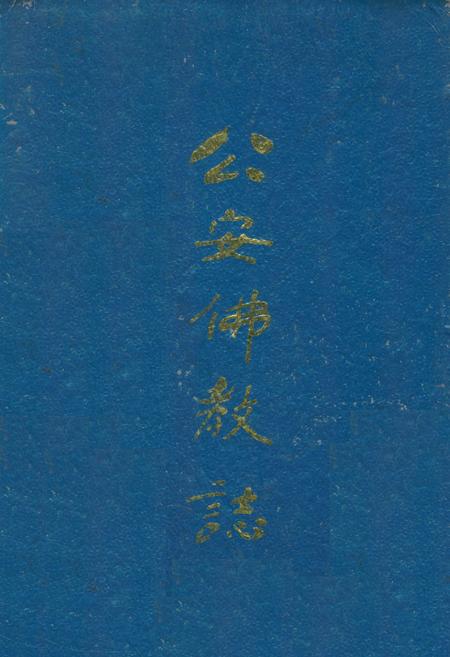 公安佛教誌